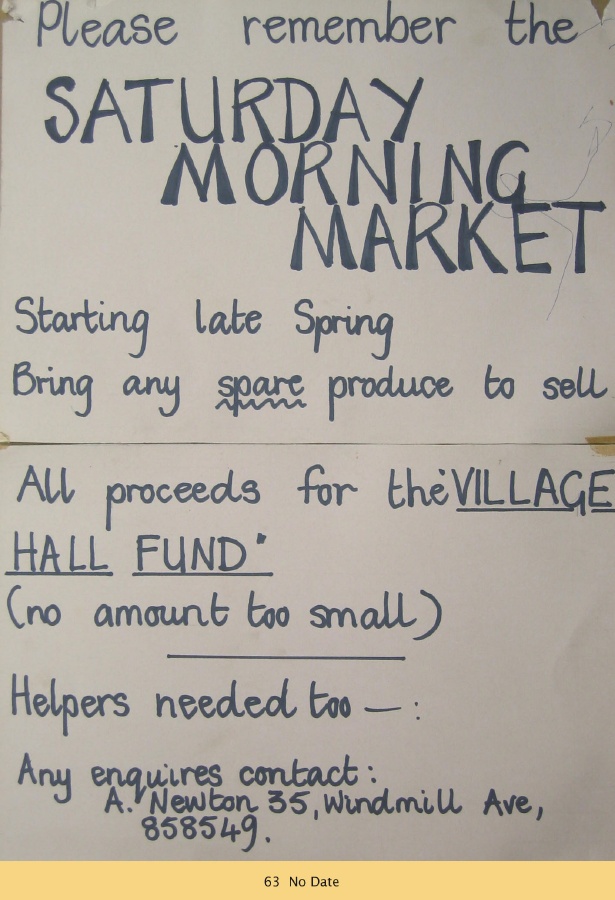 Please remember the
SATURDAY
MORNING
MARKET
Starting late Spring
Bring any spare produce to sell
All proceeds for the 'VILLAGE
HALL FUND'
(no amount too small)
Helpers needed too — :
Any enquires contact :
A. Newton 35, Windmill Ave,
858549.
63 No Date